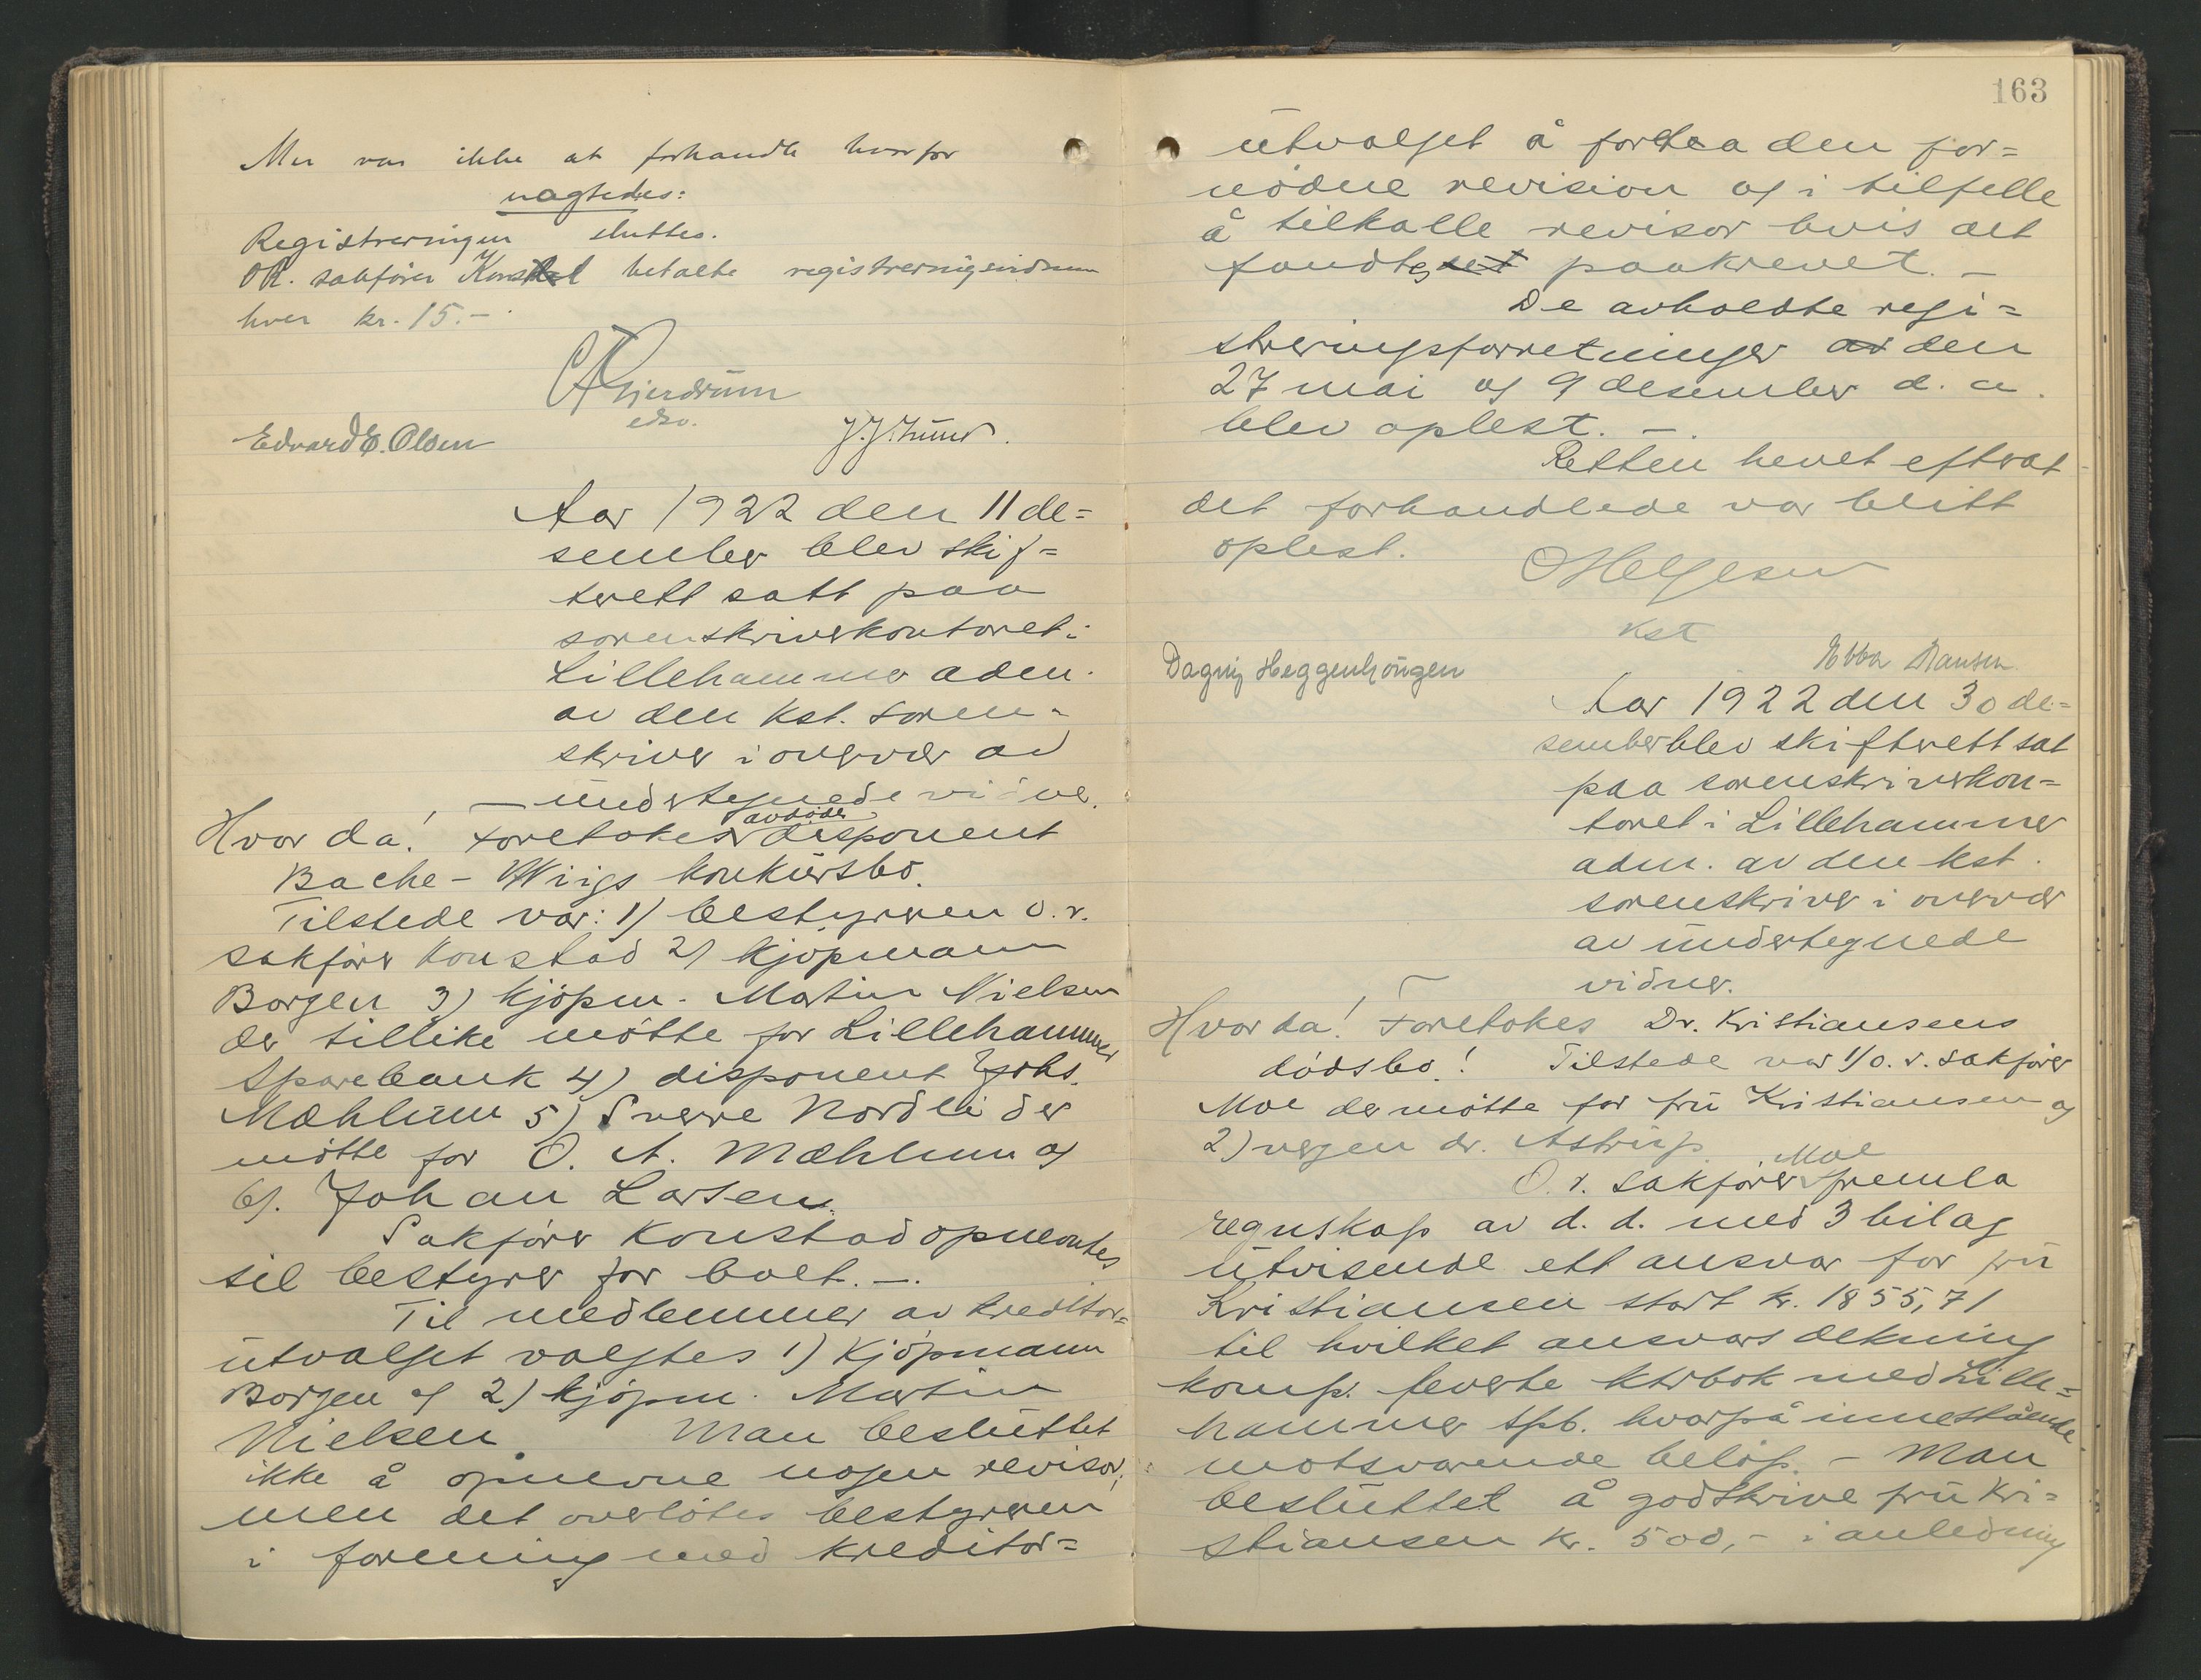 Mer var ikke at forhandle hvorfor
vagtedes:
Registreringen sluttes.
OR. sakfører Konstad betalte registreringsvidnene
hver kr. 15.-
Edvard E. Olsen
J.J. Lund.
Aar 1922 den 11 de=
sember blev skif=
terett satt paa
sorenskriverkontoret i
Lillehammer adm.
av den kst. soren-
skriver i overvær av
— undertegnede vidne.
Hvor da! Foretokes avdøde disponent
Bache-Wiigs konkursbo.
Tilstede var: 1) bestyreren o.r.
sakfører Konstad 2) kjøpmann
Borgen 3) kjøpm. Martin Nielsen
der tillike møtte for Lillehammer
Sparebank 4) disponent Johs.
Mæhlum 5) Sverre Nordli der
møtte for O. A. Mæhlum og
6). Johan Larsen.
Sakfører Konstad opnevntes
til bestyrer for boet. —.
Til medlemmer av kreditor=
utvalget valgtes 1) Kjøpmann
Borgen og 2) kjøpm. Martin
Nielsen. Man besluttet
ikke å opnevne nogen revisor,
men det overlotes bestyreren
i forening med kreditor=
163
utvalget å foreta den for=
nødne revision og i tilfelle
å tilkalle revisor hvis det
fandtes paakrevet. —
De avholdte regi=
streringsforretninger av den
27 mai og 9 desember d. a.
blev oplest. —.
Retten hevet efterat
det forhandlede var blitt
oplest.
O Helgesen
kst
Ebba Hansen
Dagny Heggenhougen
Aar 1922 den 30 de=
sember blev skifterett sat
paa sorenskriverkon=
toret i Lillehammer
adm. av den kst.
sorenskriver i overvær
av undertegnede
vidner.
Hvor da! Foretokes Dr. Kristiansens
dødsbo! Tilstede var 1/ o.r. sakfører
Moe der møtte for fru Kristiansen og
2) vergen dr. Astrup.
O.r. sakfører Moe fremla
regnskap av d.d. med 3 bilag
utvisende ett ansvar for fru
Kristiansen stort kr. 1855,71
til hvilket ansvars dekning
komp. leverte ktrbok med Lille=
hammer Spb. hvorpå innestående
motsvarende beløp. – Man
besluttet å godskrive fru Kri=
stiansen kr. 500,- i anledning